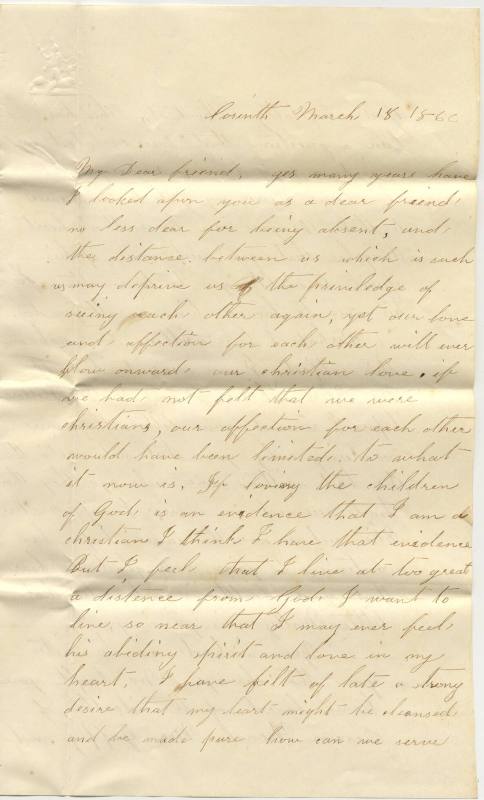 Corinth March 18 186
My Dear friend, yes many years have
I looked upon you as a dear friend
no less dear for being absent, and
the distance between us which is such
as may deprive us of the priviledge of
seeing each other again, yet our love
and affection for each other will ever
flow onward our christian love, if
we had not felt that we were
christians, our affection for each other
would have been limited to what
it now is. If loving the children
of God is an evidence that I am a
christian I think I have that evidence
But I feel that I live at too great
a distence from God I want to
live so near that I may ever feel
his abiding spirit and love in my
heart. I have felt of late a strong
desire that my heart might be cleansed
and be made pure how can we serve